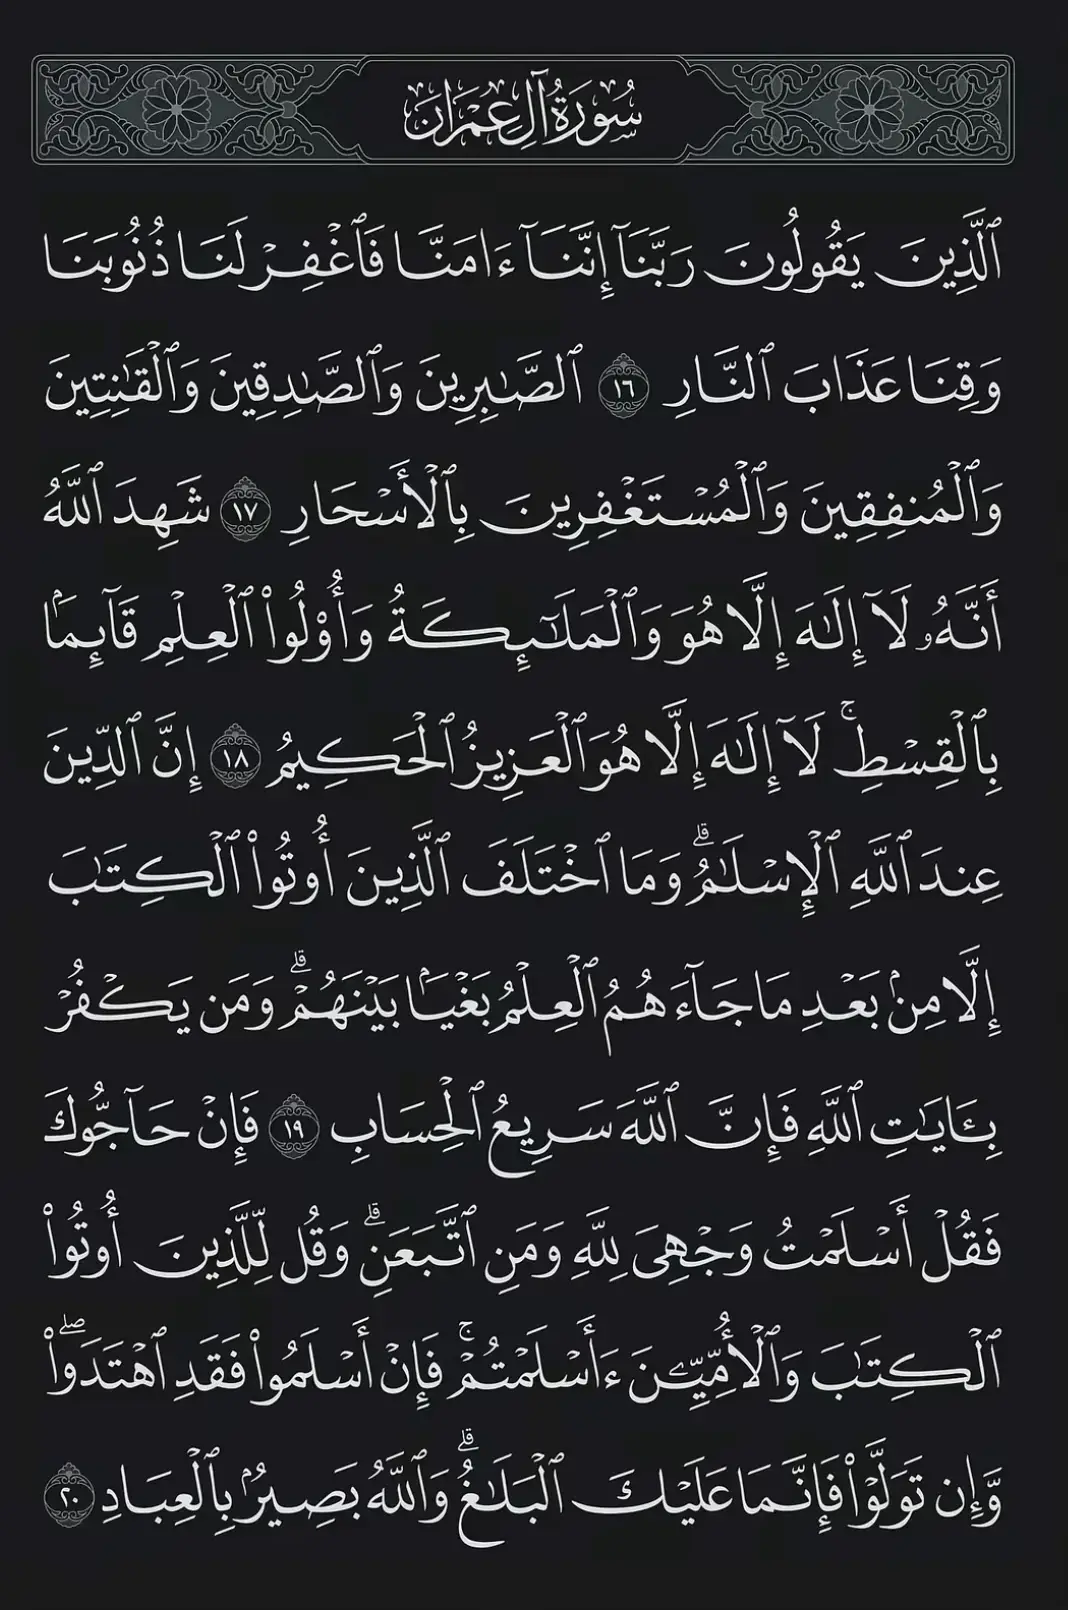 سُورَةُ آلِ عِمْرَانَ
ٱلَّذِينَ يَقُولُونَ رَبَّنَآ إِنَّنَآ ءَامَنَّا فَٱغْفِرْ لَنَا ذُنُوبَنَا
وَقِنَا عَذَابَ ٱلنَّارِ ١٦ ٱلصَّـٰبِرِينَ وَٱلصَّـٰدِقِينَ وَٱلْقَـٰنِتِينَ
وَٱلْمُنفِقِينَ وَٱلْمُسْتَغْفِرِينَ بِٱلْأَسْحَارِ ١٧ شَهِدَ ٱللَّهُ
أَنَّهُۥ لَآ إِلَـٰهَ إِلَّا هُوَ وَٱلْمَلَـٰٓئِكَةُ وَأُو۟لُوا۟ ٱلْعِلْمِ قَآئِمًۢا
بِٱلْقِسْطِ ۚ لَآ إِلَـٰهَ إِلَّا هُوَ ٱلْعَزِيزُ ٱلْحَكِيمُ ١٨ إِنَّ ٱلدِّينَ
عِندَ ٱللَّهِ ٱلْإِسْلَـٰمُ ۗ وَمَا ٱخْتَلَفَ ٱلَّذِينَ أُوتُوا۟ ٱلْكِتَـٰبَ
إِلَّا مِنۢ بَعْدِ مَا جَآءَهُمُ ٱلْعِلْمُ بَغْيًۢا بَيْنَهُمْ ۗ وَمَن يَكْفُرْ
بِـَٔايَـٰتِ ٱللَّهِ فَإِنَّ ٱللَّهَ سَرِيعُ ٱلْحِسَابِ ١٩ فَإِنْ حَآجُّوكَ
فَقُلْ أَسْلَمْتُ وَجْهِىَ لِلَّهِ وَمَنِ ٱتَّبَعَنِ ۗ وَقُل لِّلَّذِينَ أُوتُوا۟
ٱلْكِتَـٰبَ وَٱلْأُمِّيِّـۧنَ ءَأَسْلَمْتُمْ ۚ فَإِنْ أَسْلَمُوا۟ فَقَدِ ٱهْتَدَوا۟ ۖ
وَّإِن تَوَلَّوْا۟ فَإِنَّمَا عَلَيْكَ ٱلْبَلَـٰغُ ۗ وَٱللَّهُ بَصِيرٌۢ بِٱلْعِبَادِ ٢٠